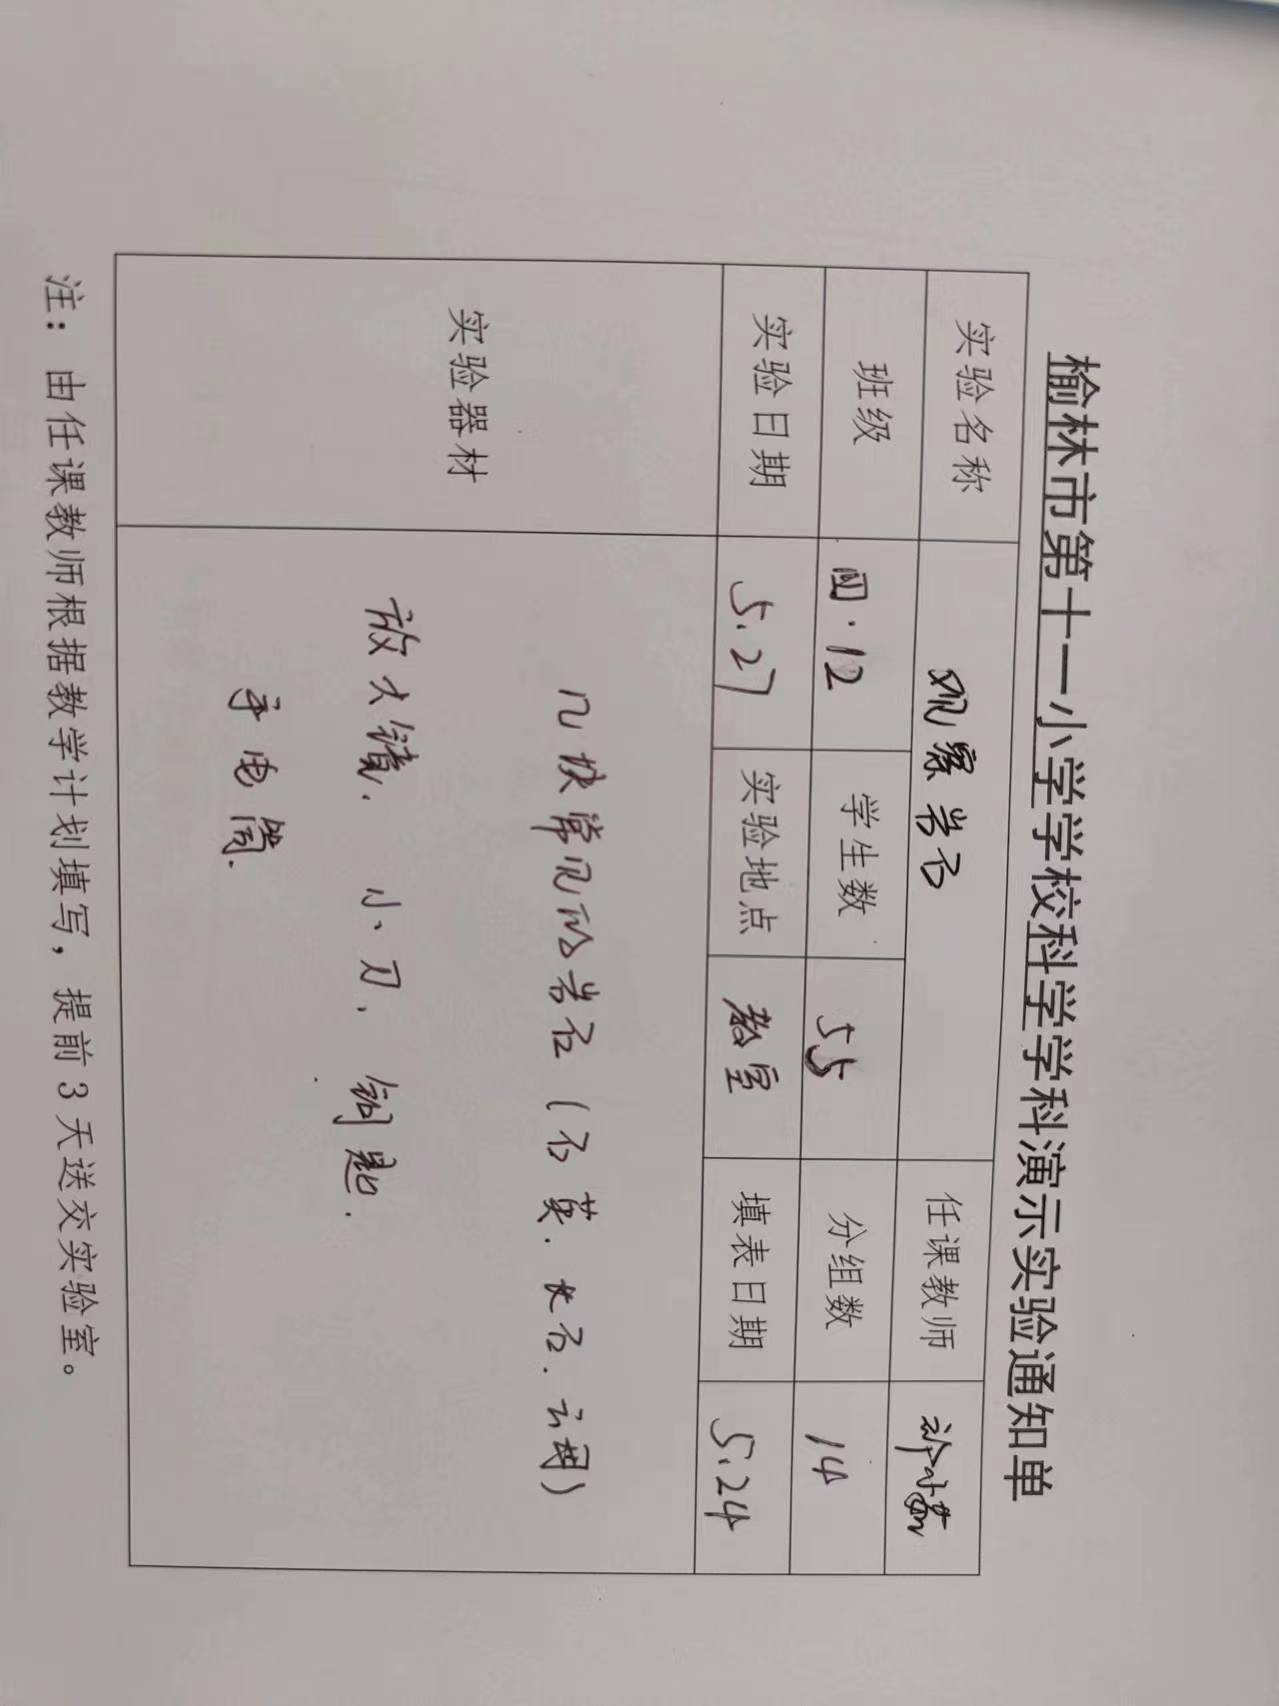 榆林市第十一小学学校科学学科演示实验通知单
实验名称 观察岩石 任课教师
班级 四·12 学生数 55 分组数 14
实验日期 5.27 实验地点 教室 填表日期 5.24
实验器材
几块常见的岩石(石英.长石.云母)
放大镜. 小刀. 钥匙.
手电筒.
注：由任课教师根据教学计划填写，提前3天送交实验室。